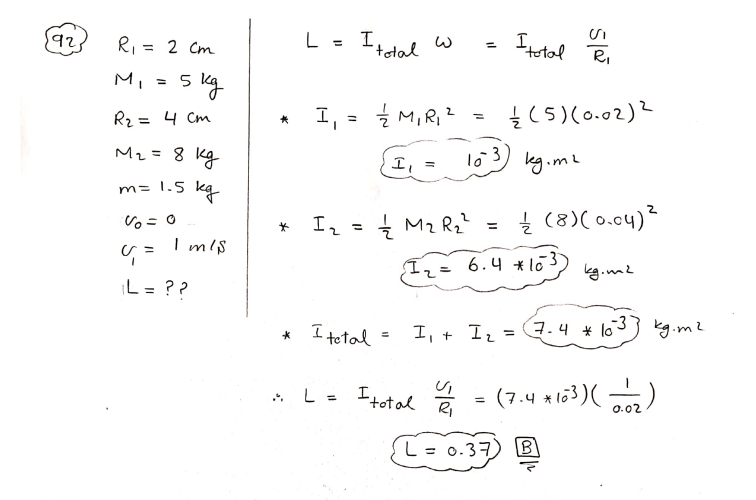 92
R₁ = 2 cm
M₁ = 5 kg
R₂ = 4 cm
M₂ = 8 kg
m = 1.5 kg
v₀ = 0
v₁ = 1 m/s
L = ??
L = I total ω = I total v₁/R₁
* I₁ = ½ M₁R₁² = ½ (5)(0.02)²
I₁ = 10⁻³ kg.m²
* I₂ = ½ M₂R₂² = ½ (8)(0.04)²
I₂ = 6.4 * 10⁻³ kg.m²
* I total = I₁ + I₂ = 7.4 * 10⁻³ kg.m²
∴ L = I total v₁/R₁ = (7.4 * 10⁻³)(1/0.02)
L = 0.37 B